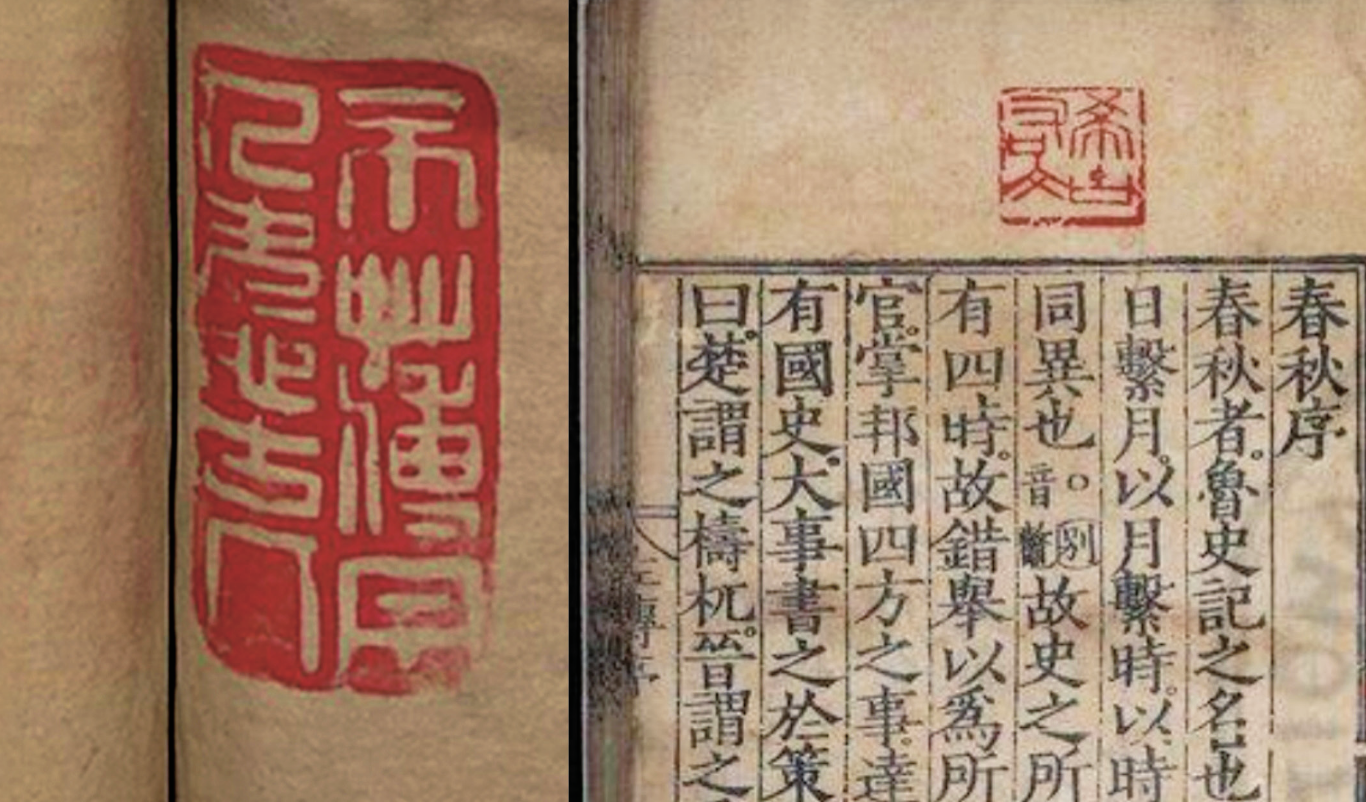 春秋序
春秋者。魯史記之名也
日繫月。以月繫時。以時
同異也。○別音故史之所
有四時。故錯舉以爲所
官。掌邦國四方之事。達
有國史。大事書之於策
曰。楚謂之檮杌。晉謂之